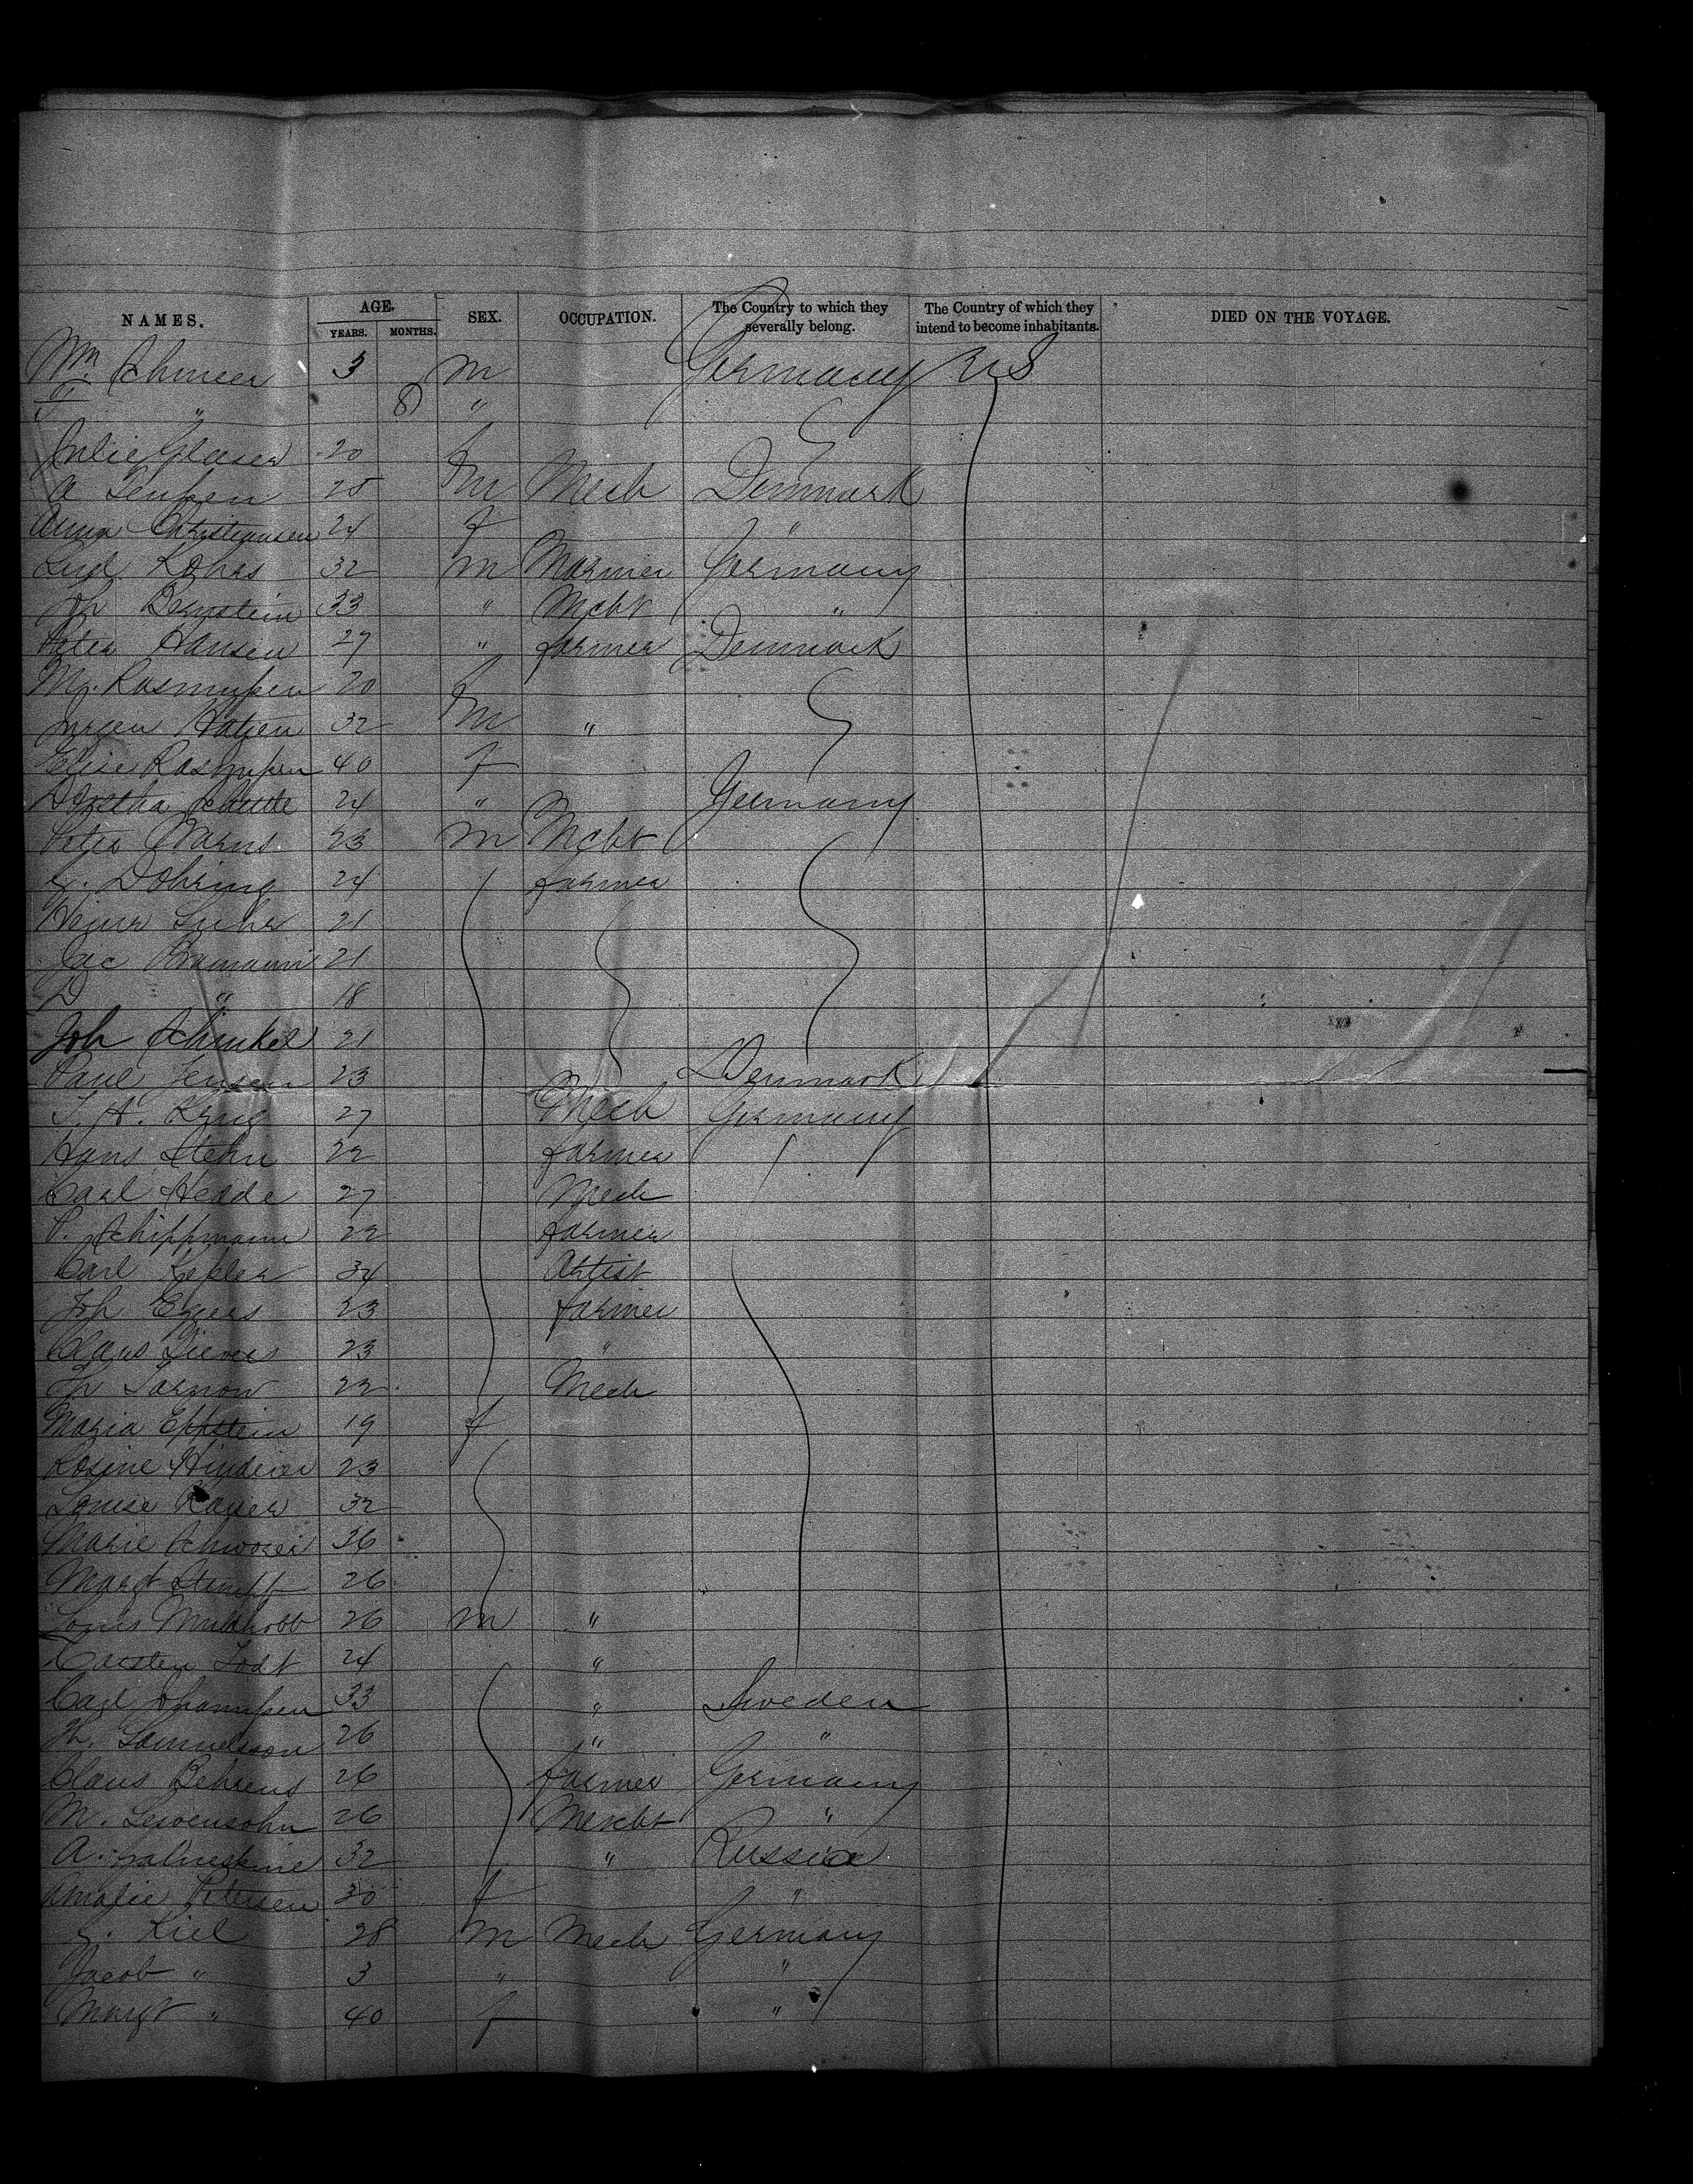 NAMES. AGE. YEARS. MONTHS. SEX. OCCUPATION. The Country to which they severally belong. The Country of which they intend to become inhabitants. DIED ON THE VOYAGE.
Wm 3 m Germany U S
" 8 "
Julie Glaser 20 f
A 28 m Mech Denmark
Anna Christiansen 24 f "
Lud. Kohrs 32 m Farmer Germany
Joh Bernstein 33 " Mcht "
Peter Hansen 27 " farmer Denmark
M. Rasmussen 20 f
Jurgen 32 m "
Elise Rasmussen 40 f
Dortha 24 " Germany
Peter 23 m Mcht
Dohring 24 farmer
Heinr Luhr 21
Jac Bramann 21
D " 18
Joh Schinkel 21
Paul Jensen 23 Denmark
27 Mech Germany
Hans Stehn 22 farmer
Carl Hedde 27 Mech
P. Schippmann 22 farmer
Carl Kepler 34 Artist
Joh Eggers 23 farmer
Claus Sievers 23 "
Sarnow 22 Mech
Maria Eppstein 19 f
Rosine Hinderer 23
Louise 32
Marie 36
Margt Stumpf 26
Louis 26 m "
Carsten Todt 24 "
Carl Johannsen 33 " Sweden
Samuelsson 26 " "
Claus Behrens 26 farmer Germany
M. Lewensohn 26 Mercht "
A. 32 " Russia
Amalie Petersen 30 f "
Kiel 28 m Mech Germany
Jacob " 3 " "
Margt " 40 f "